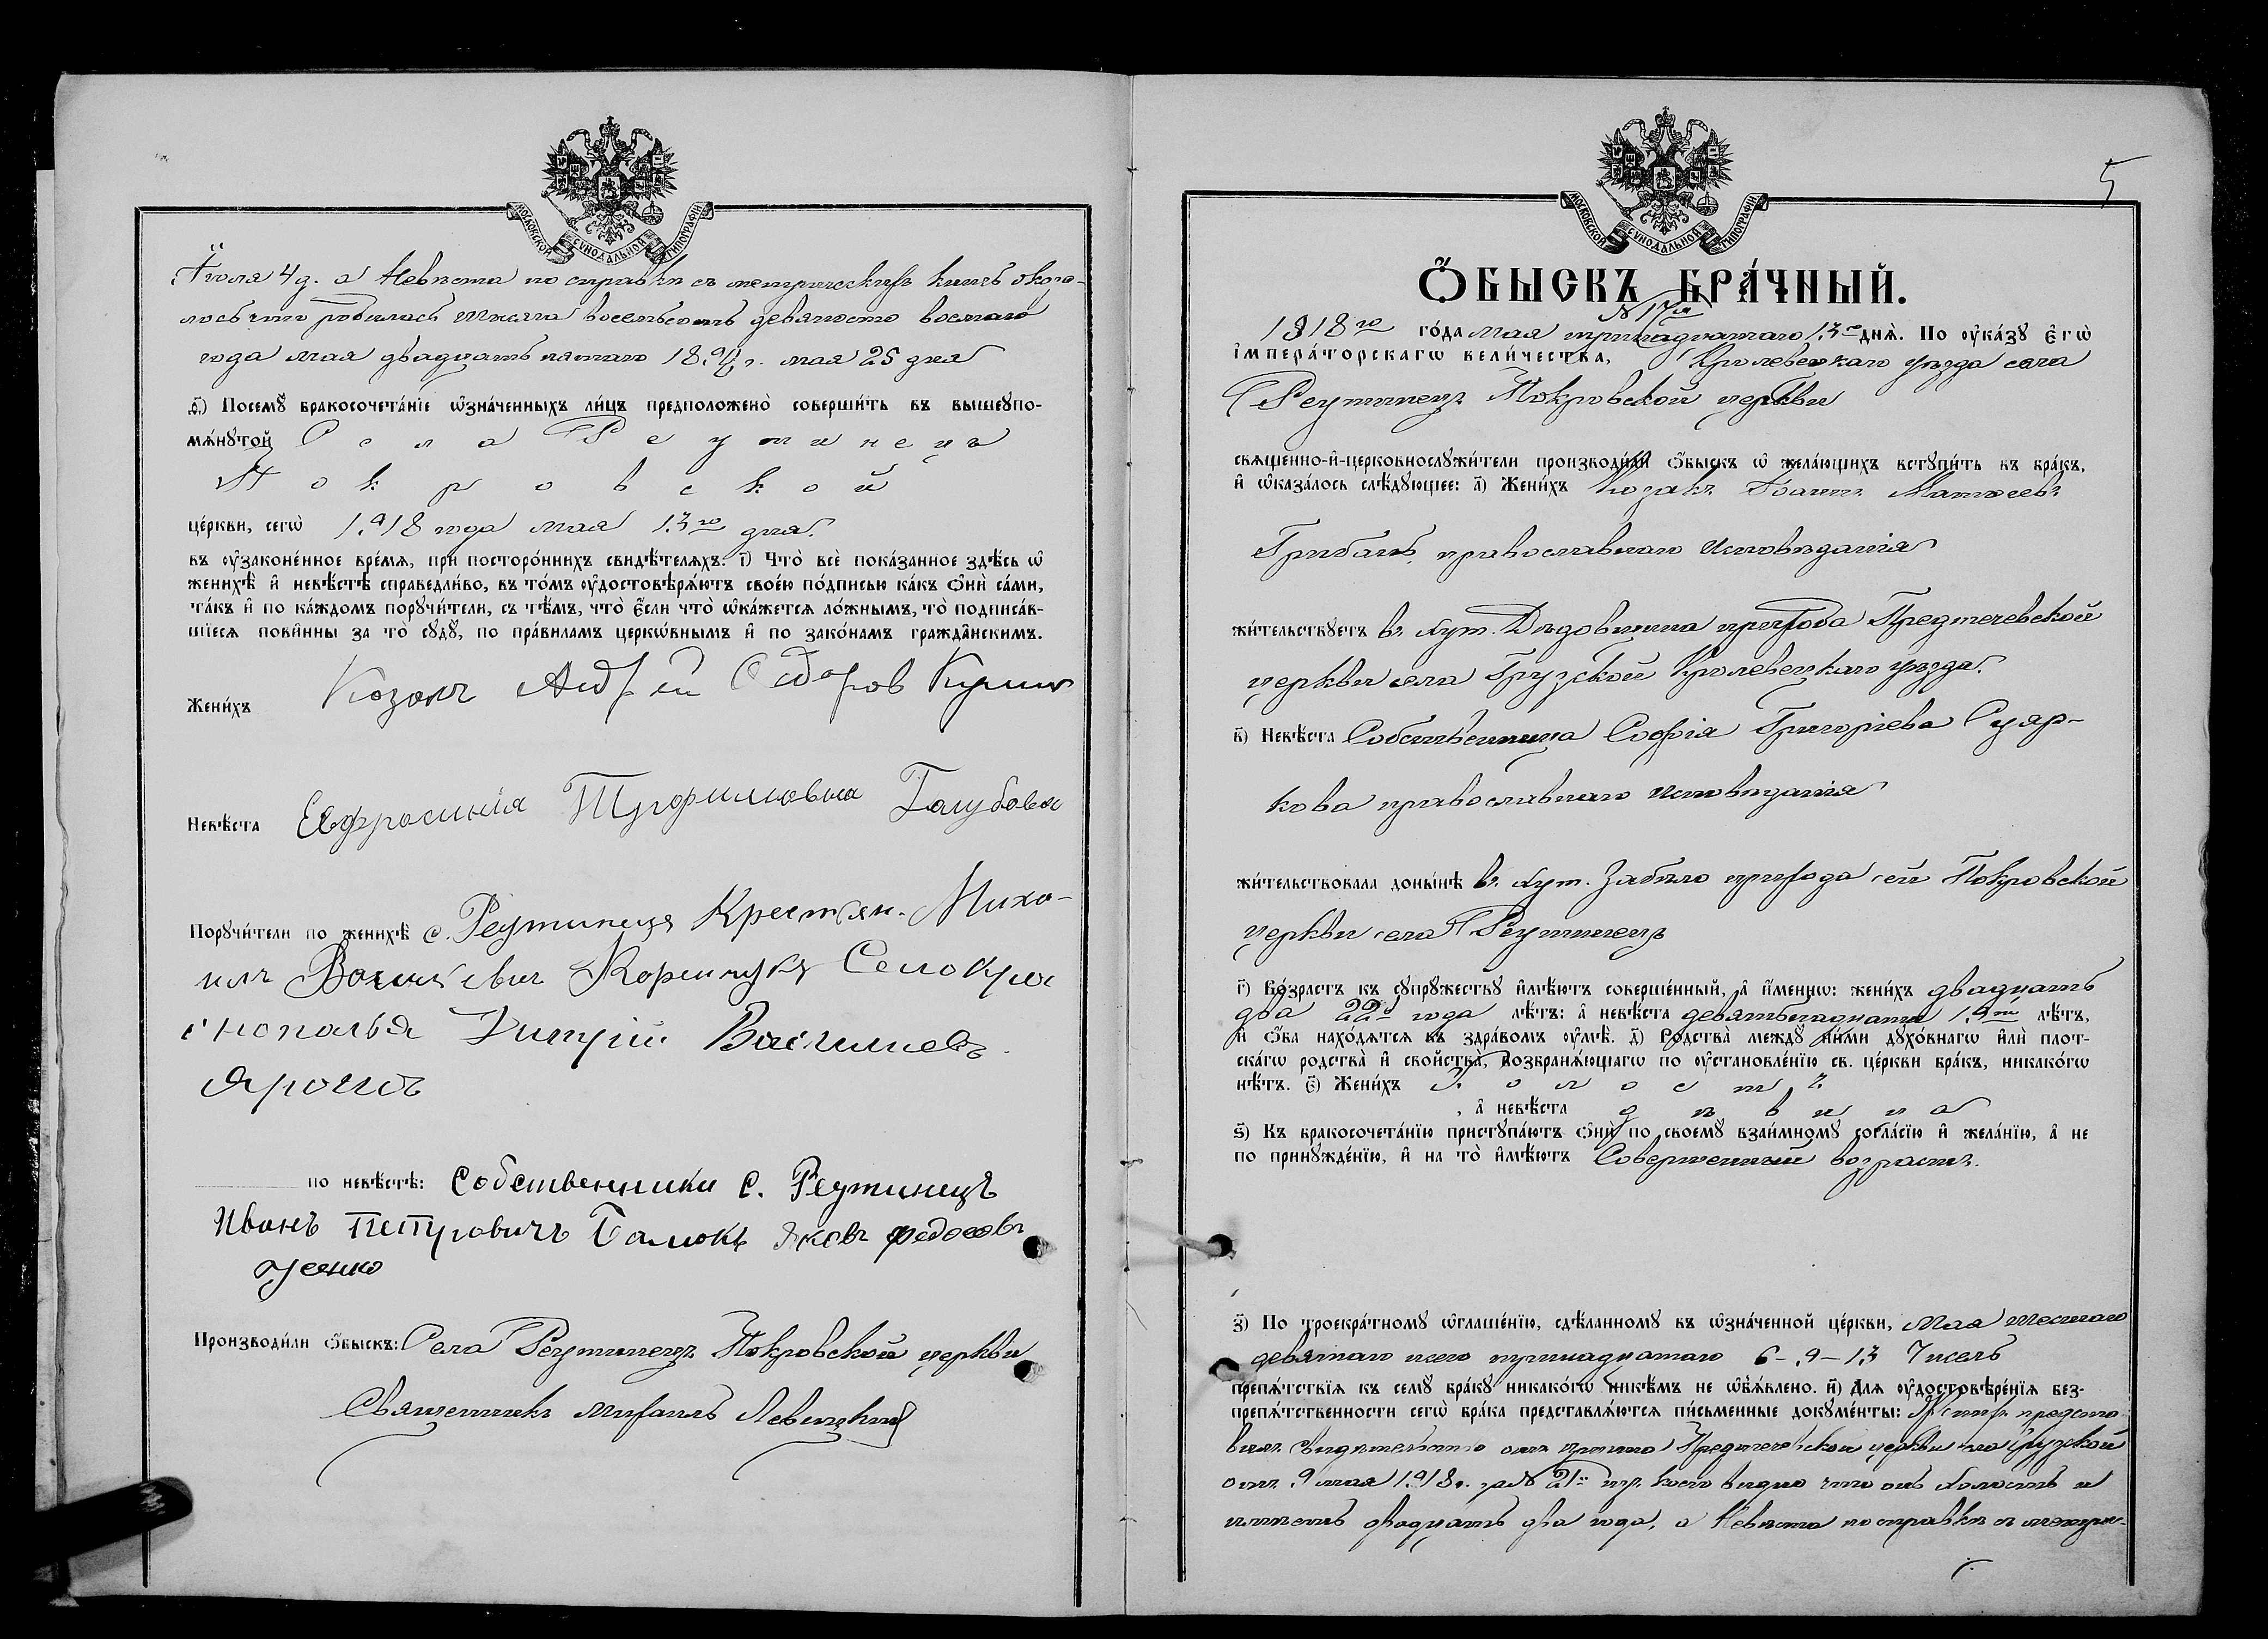 МОСКОВСКОЙ СѴНОДАЛЬНОЙ ТИПОГРАФІИ
Іюля 4 д. а Невѣста по справкѣ съ метрическихъ книгъ оказа-
лось что родилась тысяча восемьсотъ девяносто восьмаго
года мая двадцать пятаго мая 25 дня
Ѳ҃) Посемꙋ̀ бракосочета́нїе ѡ҆зна́ченныхъ ли́цъ предположено̀ соверши́ть въ вышеꙋпо-
мѧ́нꙋтой С е л а Р е у т и н е ц ъ
П о к р о в с к о й
це́ркви, сегѡ̀ 1918 года мая 13го дня.
въ ᲂу҆законе́нное вре́мѧ, при посторо́ннихъ свидѣ́телѧхъ. і҃) Что̀ всѐ пока́занное здѣ́сь ѡ҆
женихѣ̀ и҆ невѣ́стѣ справедли́во, въ то́мъ ᲂу҆достовѣрѧ́ютъ свое́ю по́дписью ка́къ ѻ҆нѝ са́ми,
та́къ и҆ по ка́ждомъ порꙋчи́тели, съ тѣ́мъ, что̀ є҆́сли что̀ ѡ҆ка́жется ло́жнымъ, то̀ подписа́в-
шїеся пови́нны за то̀ сꙋдꙋ̀, по пра́виламъ церко́внымъ и҆ по зако́намъ гражда́нскимъ.
Жени́хъ Козакъ Сидоров
Невѣ́ста Евфросинія Голубова
Порꙋчи́тели по женихѣ̀ с. Реутинецъ Крестян. Миха-
илъ
Василиевъ
Ярошъ
по невѣ́стѣ: Собственники с. Реутинецъ
Иванъ Петровичъ Яковъ Федосовъ
Производи́ли ѻ҆́быскъ: Села Реутинецъ Покровской церкви
Священникъ Михаилъ Левицкий
5
МОСКОВСКОЙ СѴНОДАЛЬНОЙ ТИПОГРАФІИ
Ѻ҆БЫСКЪ БРА́ЧНЫЙ.
№ 17й
1918го го́да мая тринадцатаго 13го днѧ̀. По ᲂу҆ка́зꙋ Є҆гѡ̀
І҆мпера́торскагѡ вели́чества, Кролевецкаго уѣзда села
Реутинецъ Покровской церкви
свѧще́нно-и҆-церковнослꙋжи́тели производи́ли ѻ҆́быскъ ѡ҆ жела́ющихъ встꙋпи́ть въ бра́къ,
и҆ ѡ҆каза́лось слѣ́дꙋющее: а҃) Жени́хъ Козакъ Іоаннъ Матѳеевъ
Грибанъ, православнаго исповѣданія
жи́тельствꙋетъ въ хут. Дѣдовщина прихода Предтечевской
церкви села Грузской Кролевецкаго уѣзда.
в҃) Невѣ́ста Собственница Софія Григоріева Суяр-
кова православнаго исповѣданія
жи́тельствовала доны́нѣ въ хут. Забѣло прихода сей Покровской
церкви села Реутинецъ
г҃) Во́зрастъ къ сꙋпрꙋ́жествꙋ и҆мѣ́ютъ соверше́нный, а҆ и҆́менно: жени́хъ двадцать
два 22 года лѣ́тъ: а҆ невѣ́ста девятьнадцать 19ть лѣ́тъ,
и҆ ѻ҆́ба нахо́дѧтся въ здра́вомъ ᲂу҆мѣ̀. д҃) Родства̀ междꙋ̀ ни́ми дꙋхо́внагѡ и҆лѝ плот-
ска́гѡ родства̀ и҆ сво́йства, возбранѧ́ющагѡ по ᲂу҆становле́нїю св. це́ркви бра́къ, никако́гѡ
нѣ́тъ. є҃) Жени́хъ Х о л о с т ъ
, а҆ невѣ́ста д ѣ в и ц а
ѕ҃) Къ бракосочета́нїю пристꙋпа́ютъ ѻ҆нѝ по своемꙋ̀ взаи́мномꙋ согла́сїю и҆ жела́нїю, а҆ не
по принꙋжде́нїю, и҆ на то̀ и҆мѣ́ютъ Совершенный возрастъ.
з҃) По троекра́тномꙋ ѡ҆глаше́нїю, сдѣ́ланномꙋ въ ѡ҆зна́ченной це́ркви, мая шестаго
девятаго и тринадцатаго 6-9-13 Чиселъ
препѧ́тствїѧ къ семꙋ̀ бра́кꙋ никако́гѡ никѣ́мъ не ѡ҆б̾ѧ́влено. и҃) Для ᲂу҆достовѣре́нїѧ без-
препѧ́тственности сегѡ̀ бра́ка представлѧ́ются пи́сьменные докꙋме́нты: Женихъ предста-
вилъ свидѣтельство отъ причта Предтечевской церкви села Грузской
отъ 9 мая 1918 г. за № 21м изъ коего видно что онъ холостъ и
имѣетъ двадцать два года, а Невѣста по справкѣ съ метри-